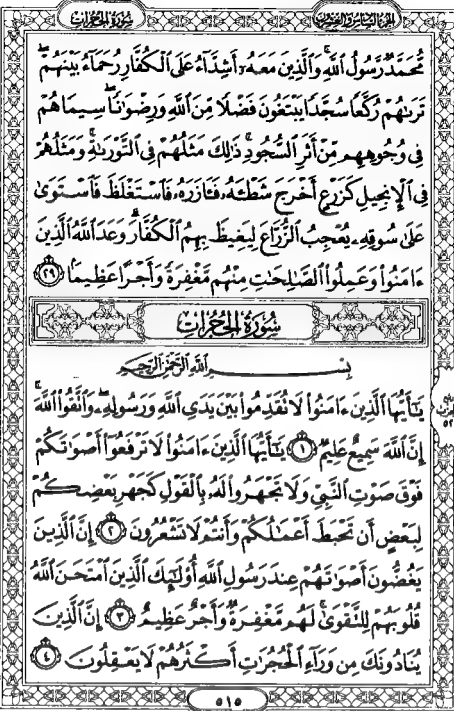 سُورَةُ الحُجُرَاتِ
الجزء السادس والعشرون
مُّحَمَّدٌ رَّسُولُ ٱللَّهِ وَٱلَّذِينَ مَعَهُۥٓ أَشِدَّآءُ عَلَى ٱلْكُفَّارِ رُحَمَآءُ بَيْنَهُمْۖ
تَرَىٰهُمْ رُكَّعًا سُجَّدًا يَبْتَغُونَ فَضْلًا مِّنَ ٱللَّهِ وَرِضْوَٰنًاۖ سِيمَاهُمْ
فِى وُجُوهِهِم مِّنْ أَثَرِ ٱلسُّجُودِۚ ذَٰلِكَ مَثَلُهُمْ فِى ٱلتَّوْرَىٰةِۚ وَمَثَلُهُمْ
فِى ٱلْإِنجِيلِ كَزَرْعٍ أَخْرَجَ شَطْـَٔهُۥ فَـَٔازَرَهُۥ فَٱسْتَغْلَظَ فَٱسْتَوَىٰ
عَلَىٰ سُوقِهِۦ يُعْجِبُ ٱلزُّرَّاعَ لِيَغِيظَ بِهِمُ ٱلْكُفَّارَۗ وَعَدَ ٱللَّهُ ٱلَّذِينَ
ءَامَنُوا۟ وَعَمِلُوا۟ ٱلصَّٰلِحَٰتِ مِنْهُم مَّغْفِرَةً وَأَجْرًا عَظِيمًۢا ٢٩
سُورَةُ الحُجُرَاتِ
بِسْمِ ٱللَّهِ ٱلرَّحْمَٰنِ ٱلرَّحِيمِ
يَٰٓأَيُّهَا ٱلَّذِينَ ءَامَنُوا۟ لَا تُقَدِّمُوا۟ بَيْنَ يَدَىِ ٱللَّهِ وَرَسُولِهِۦۖ وَٱتَّقُوا۟ ٱللَّهَۚ
إِنَّ ٱللَّهَ سَمِيعٌ عَلِيمٌ ١ يَٰٓأَيُّهَا ٱلَّذِينَ ءَامَنُوا۟ لَا تَرْفَعُوٓا۟ أَصْوَٰتَكُمْ
فَوْقَ صَوْتِ ٱلنَّبِىِّ وَلَا تَجْهَرُوا۟ لَهُۥ بِٱلْقَوْلِ كَجَهْرِ بَعْضِكُمْ
لِبَعْضٍ أَن تَحْبَطَ أَعْمَٰلُكُمْ وَأَنتُمْ لَا تَشْعُرُونَ ٢ إِنَّ ٱلَّذِينَ
يَغُضُّونَ أَصْوَٰتَهُمْ عِندَ رَسُولِ ٱللَّهِ أُو۟لَٰٓئِكَ ٱلَّذِينَ ٱمْتَحَنَ ٱللَّهُ
قُلُوبَهُمْ لِلتَّقْوَىٰۚ لَهُم مَّغْفِرَةٌ وَأَجْرٌ عَظِيمٌ ٣ إِنَّ ٱلَّذِينَ
يُنَادُونَكَ مِن وَرَآءِ ٱلْحُجُرَٰتِ أَكْثَرُهُمْ لَا يَعْقِلُونَ ٤
٥١٥